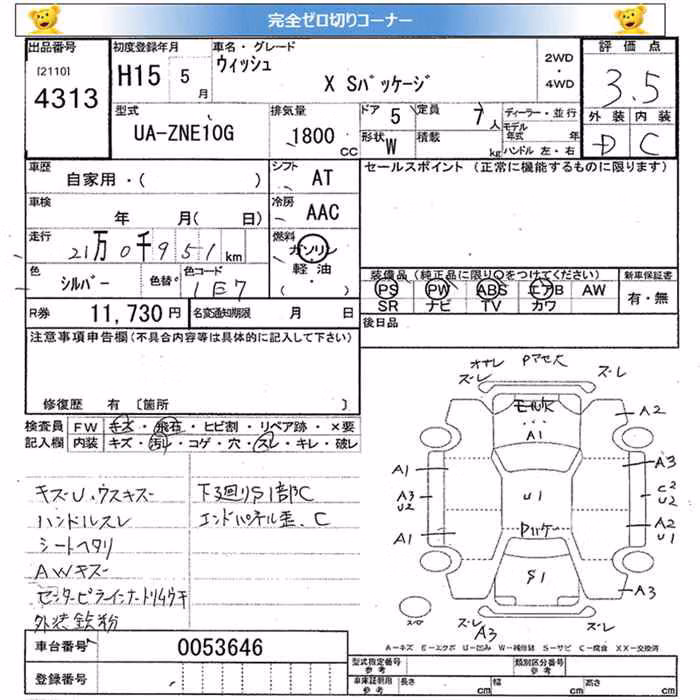 完全ゼロ切りコーナー
出品番号 初度登録年月 車名・グレード 評価点
[2110] 4313
H15 5月
ウィッシュ
X Sパッケージ
2WD・4WD
3.5
外装 内装
D C
型式 UA-ZNE10G
排気量 1800 CC
ドア 5 定員 7人
形状 W 積載 kg
ディーラー・並行
モデル年式 年
ハンドル 左・右
車歴 自家用・( )
シフト AT
セールスポイント (正常に機能するものに限ります)
車検 年 月( 日)
冷房 AAC
走行 21万0千951km
燃料 ガソリン 軽油 ( ・ )
色 シルバー 色替 色コード 1E7
装備品 (純正品に限り○をつけてください) 新車保証書
PS PW ABS エアB AW 有・無
SR ナビ TV カワ
R券 11,730円 名変通知期限 月 日
後日品
注意事項申告欄(不具合内容等は具体的に記入して下さい)
修復歴 有 [箇所 ]
検査員記入欄
FW キズ・飛石・ヒビ割・リペア跡・×要
内装 キズ・汚レ・コゲ・穴・スレ・キレ・破レ
キズU、ウスキズ
ハンドルスレ
シートヘタリ
AWキズ
センターピラーインナートリムウキ
外装鉄粉
下回りS1部C
エンドパネル歪、C
ズレ
ズレ
A2
A1
A1
A3
A3 U2
U1
C2 U2
A1
A2 U1
S1
A3
ズレ
A3
ズレ
A-キズ E-エクボ U-凹み W-補修跡 S-サビ C-腐食 XX-交換済
車台番号 0053646
登録番号
型式指定番号 参考 類別区分番号 参考
車庫証明用 参考 長さ cm 幅 cm 高さ cm